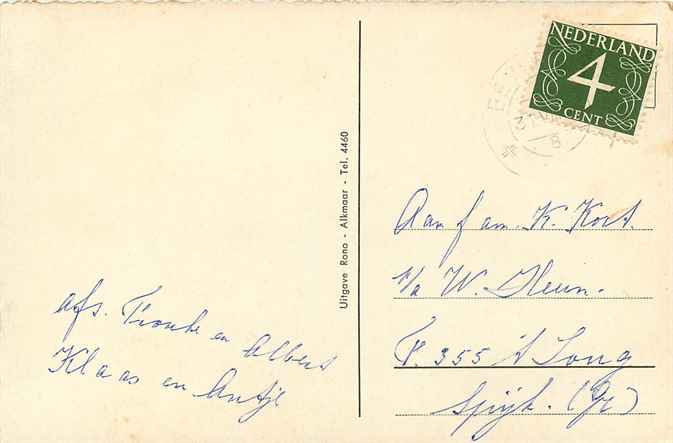 NEDERLAND
4
CENT
Uitgave Rono - Alkmaar - Tel. 4460
Aan fam. K. Kort.
W.
355 't
Spijk. (Gr)
afs. en Albert
Klaas en Antje